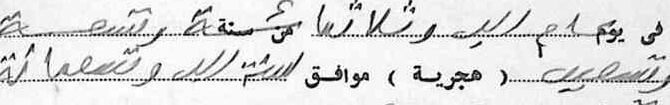 في يوم عام الف وثلاثمائة من سنة وتسعة
وتسعين ( هجرية ) موافق لسنة الف وتسعمائة